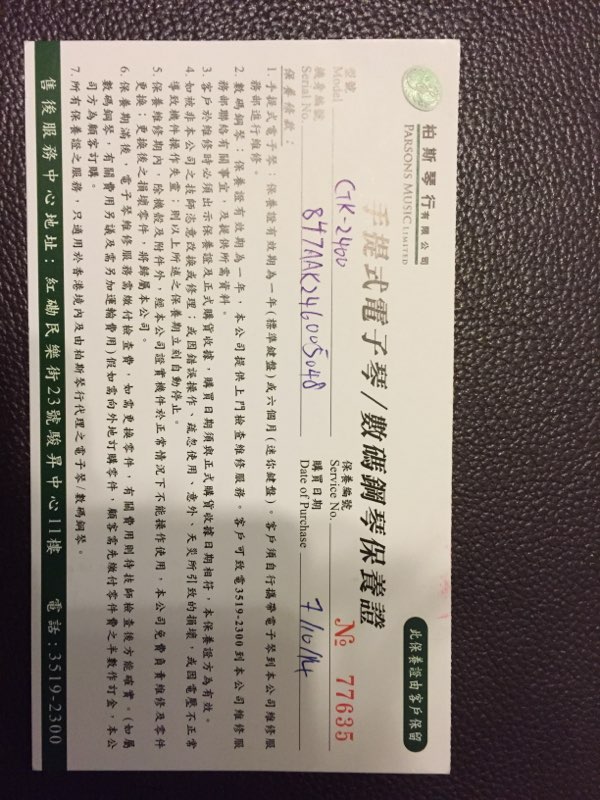 柏斯琴行有限公司
PARSONS MUSIC LIMITED
此保養證由客戶保留
手提式電子琴/數碼鋼琴保養證
型號 Model CTK-2400
保養編號 Service No. № 77635
機身編號 Serial No. 847AAK246005048
購買日期 Date of Purchase 7/10/14
保養條款:
1. 手提式電子琴:保養證有效期為一年(標準鍵盤)或六個月(迷你鍵盤)。客戶須自行攜帶電子琴到本公司維修服
務部進行維修。
2. 數碼鋼琴:保養證有效期為一年,本公司提供上門檢查維修服務。客戶可致電3519-2300到本公司維修服
務部聯絡有關事宜,及提供所需資料。
3. 客戶於維修時必須出示保養證及正式購貨收據,購買日期須與正式購貨收據日期相符,本保養證方為有效。
4. 如被非本公司之技師恣意改換或修理;或因錯誤操作、疏忽使用、意外、天災所引致的損壞,或因電壓不正常
導致機件操作失靈;則以上所述之保養期立刻自動停止。
5. 保養維修期內,除機殼及附件外,經本公司證實機件於正常情況下不能操作使用,本公司免費負責維修及零件
更換;更換後之損壞零件,將歸屬本公司。
6. 保養期滿後,電子琴維修服務需繳付檢查費,如需更換零件,有關費用則待技師檢查後方能確實。(如屬
數碼鋼琴,有關費用另議及需另加運輸費用)假如需向外地訂購零件,顧客需先繳付零件費之半數作訂金,本公
司方為顧客訂購。
7. 所有保養證之服務,只適用於香港境內及由柏斯琴行代理之電子琴/數碼鋼琴。
售後服務中心地址:紅磡民樂街23號駿昇中心11樓 電話:3519-2300